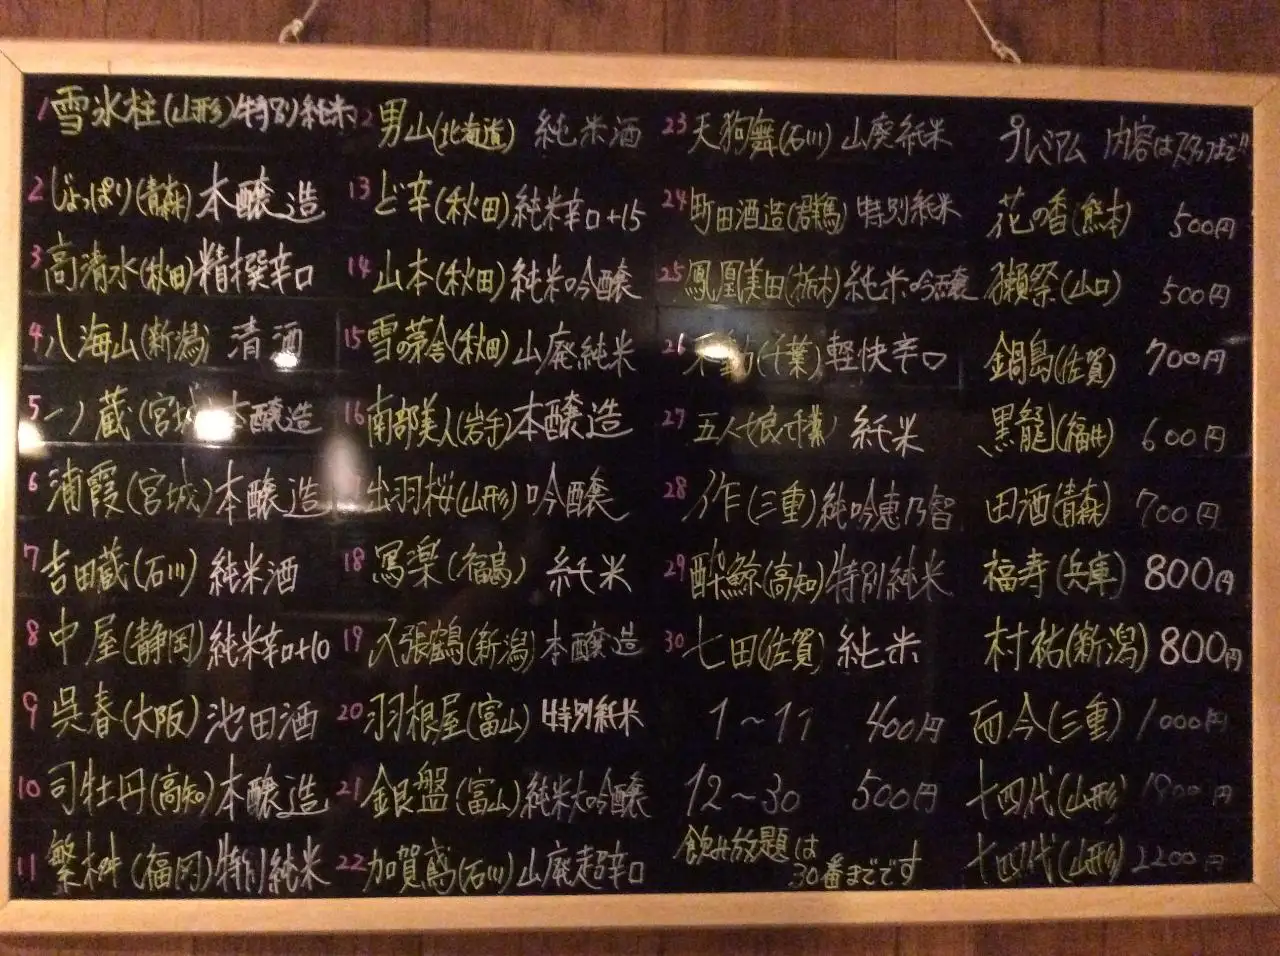 1 雪氷柱(山形)特別純米
2 じょっぱり(青森)本醸造
3 高清水(秋田)精撰辛口
4 八海山(新潟) 清酒
5 一ノ蔵(宮城)本醸造
6 浦霞(宮城)本醸造
7 吉田蔵(石川) 純米酒
8 中屋(静岡)純米辛口+10
9 呉春(大阪)池田酒
10 司牡丹(高知)本醸造
11 繁桝(福岡)特別純米
男山(北海道) 純米酒
13 ど辛(秋田)純米辛口+15
14 山本(秋田)純米吟醸
15 雪の茅舎(秋田)山廃純米
16 南部美人(岩手)本醸造
出羽桜(山形)吟醸
18 寫楽(福島) 純米
19 〆張鶴(新潟)本醸造
20 羽根屋(富山)特別純米
21 銀盤(富山)純米大吟醸
22 加賀鳶(石川)山廃超辛口
23 天狗舞(石川)山廃純米
24 町田酒造(群馬)特別純米
25 鳳凰美田(栃木)純米吟醸
26 不動(千葉)軽快辛口
27 五人娘(千葉) 純米
28 作(三重)純吟恵乃智
29 酔鯨(高知)特別純米
30 七田(佐賀) 純米
1〜11 400円
12〜30 500円
飲み放題は
30番までです
プレミアム 内容はスタッフまで!!
花の香(熊本) 500円
獺祭(山口) 500円
鍋島(佐賀) 700円
黒龍(福井) 600円
田酒(青森) 700円
福寿(兵庫) 800円
村祐(新潟) 800円
而今(三重) 1000円
十四代(山形)
十四代(山形) 2200円